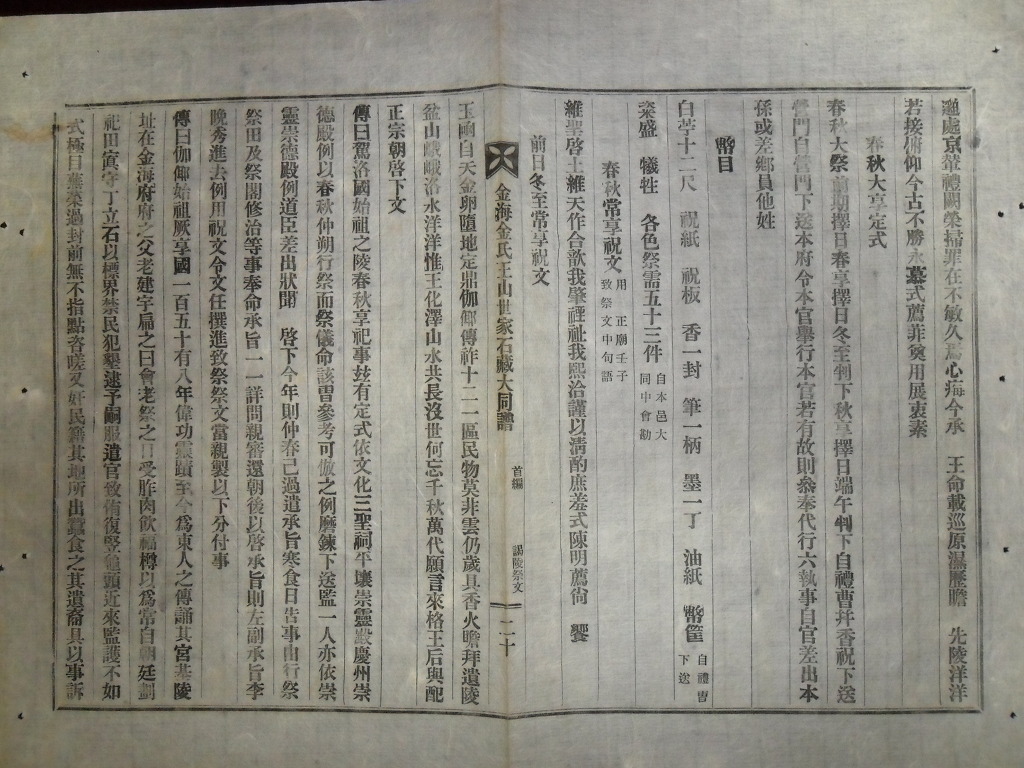 邈處京輦禮闕榮掃罪在不敏久爲心痗今承　王命載巡原濕歷瞻　先陵洋洋
若接俯仰今古不勝永慕式薦菲奠用展衷素
春秋大享定式
春秋大祭前期擇日春享擇日冬至判下秋享擇日端午判下自禮曹幷香祝下送
營門自營門下送本府令本官擧行本官若有故則叅奉代行六執事自官差出本
孫或差鄕員他姓
幣目
白苧十二尺　祝紙　祝板　香一封　筆一柄　墨一丁　油紙　幣筐　自禮曹下送
粢盛　犧牲　各色祭需五十三件　自本邑大同中會勘
春秋常享祝文　用正廟壬子致祭文中句語
維聖啓土維天作合歆我肇禋祉我熙洽謹以淸酌庶羞式陳明薦尙　饗
前日冬至常享祝文
玉凾自天金卵墮地定鼎伽倻傳祚十二一區民物莫非雲仍歲具香火瞻拜遺陵
盆山峨峨洛水洋洋惟王化澤山水共長沒世何忘千秋萬代願言來格王后與配
正宗朝啓下文
傳曰駕洛國始祖之陵春秋享祀事玆有定式依文化三聖祠平壤崇靈殿慶州崇
德殿例以春秋仲朔行祭而祭儀命該曹參考可倣之例磨鍊下送監一人亦依崇
靈崇德殿例道臣差出狀聞　啓下今年則仲春已過遣承旨寒食日告事由行祭
祭田及祭閣修治等事奉命承旨一一詳問親審還朝後以啓承旨則左副承旨李
晩秀進去例用祝文令文任撰進致祭祭文當親製以下分付事
傳曰伽倻始祖厥享國一百五十有八年偉功震蹟至今爲東人之傳誦其宮基陵
址在金海府府之父老建宇扁之曰會老祭之日受胙肉飮福樽以爲常自朝廷劃
祀田寘守丁立石以標界禁民犯墾逮予嗣服遣官致侑復竪龜頭近來監護不如
式極目蕪萊過封前無不指點咨嗟又奸民籍其地所出蠶食之其遺裔具以事訴
金海金氏王山世家石藏大同譜　首編　謁陵祭文　二十